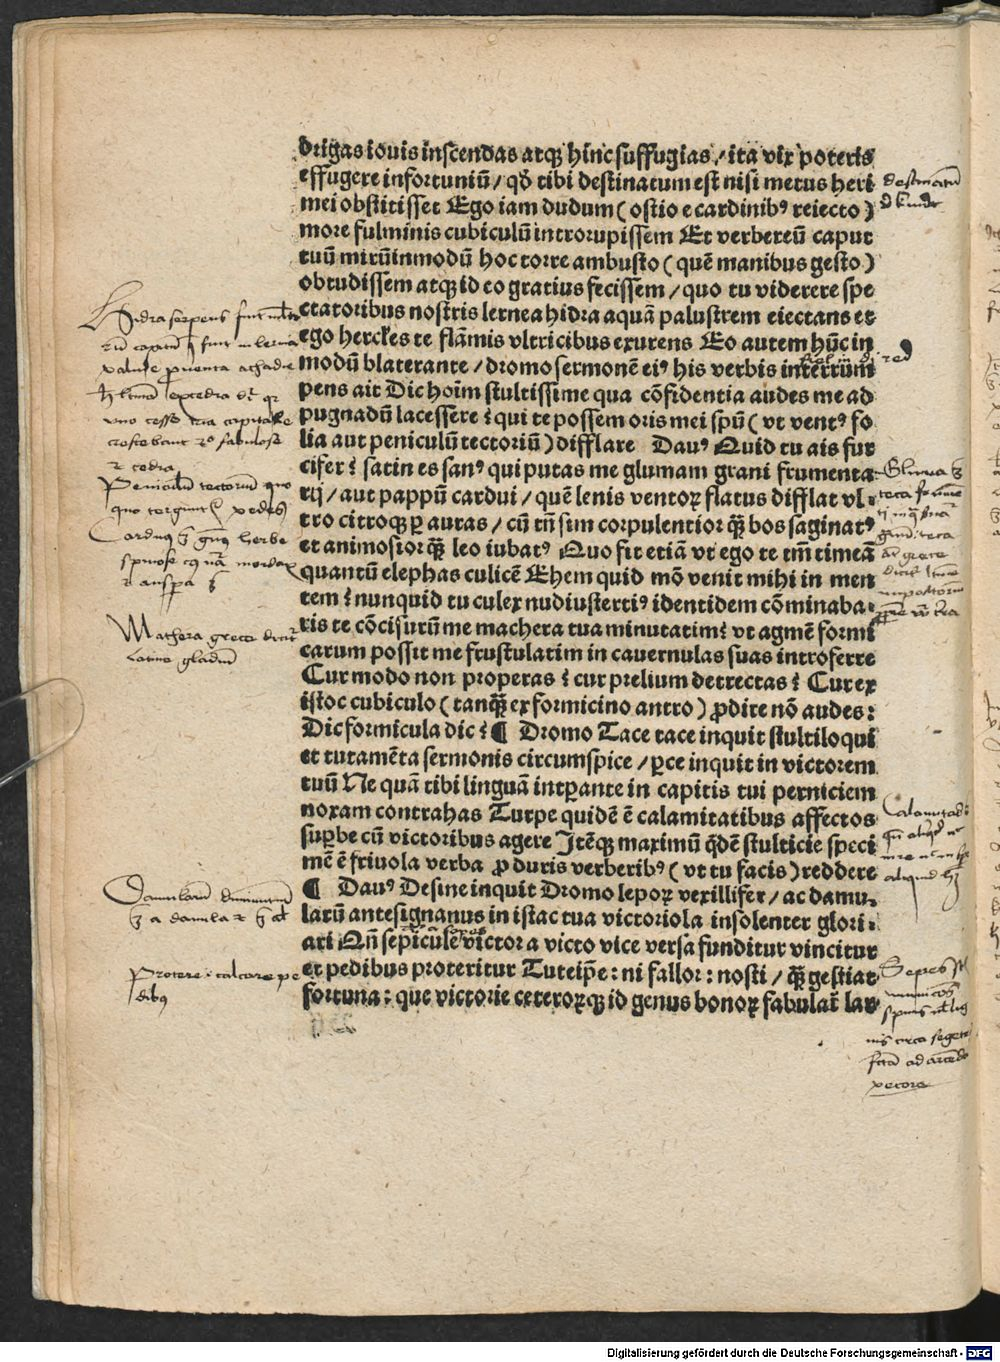 drigas iouis inscendas atqꝫ hinc suffugias / ita vix poteris
effugere infortuniū / qď tibi destinatum est nisi metus heri
mei obstitisset Ego iam dudum ( ostio e cardinibꝰ reiecto )
more fulminis cubiculū introrupissem Et verbereū caput
tuū mirūinmodū hoc torre ambusto ( quē manibus gesto )
obtudissem atqꝫ id eo gratius fecissem / quo tu viderere spe
ctatoribus nostris lernea hidra aquā palustrem eiectans et
ego hercles te flāmis vltricibus exurens Eo autem hūc in
modū blaterante / dromo sermonē eiꝰ his verbis interrūm
pens ait Dic hoīm stultissime qua cōfidentia audes me ad
pugnadū lacessere ? qui te possem oris mei spū ( vt ventꝰ fo
lia aut peniculū tectoriū ) difflare Dauꝰ Quid tu ais fur
cifer ? satin es sanꝰ qui putas me glumam grani frumenta
rij / aut pappū cardui / quē lenis ventoꝝ flatus difflat vl
tro citroqꝫ ꝑ auras / cū tn̄ sim corpulentior qꝫ̄ bos saginatꝰ
et animosior qꝫ̄ leo iubatꝰ Quo fit etiā vt ego te tm̄ timeā
quantū elephas culicē Ehem quid mō venit mihi in men
tem ? nunquid tu culex nudiustertiꝰ identidem cōminaba⸗
ris te cōcisurū me machera tua minutatim ? vt agmē formi
carum possit me frustulatim in cauernulas suas introferre
Cur modo non properas ? cur prelium detrectas ? Cur ex
istoc cubiculo ( tanqꝫ̄ ex formicino antro ) ꝓdire nō audes :
Dic formicula dic ? ¶ Dromo Tace tace inquit stultiloqui
et tutamēta sermonis circumspice / ꝑce inquit in victorem
tuū Ne quā tibi linguā intꝑante in capitis tui perniciem
noxam contrahas Turpe quidē ē calamitatibus affectos
suꝑbe cū victoribus agere Itēqꝫ maximū qďē stulticie speci
mē ē friuola verba ꝓ duris verberibꝰ ( vt tu facis ) reddere
¶ Dauꝰ Desine inquit Dromo lepoꝝ vexillifer / ac damu⸗
larū antesignanus in istac tua victoriola insolenter glori⸗
ari Qn̄ sepicule victor a victo vice versa funditur vincitur
et pedibus proteritur Tuteip̄e : ni fallor : nosti / qꝫ̄ gestiat
fortuna : que victorie ceteroꝝqꝫ id genus bonoꝝ fabulat̄ lar
Hidra serpens
Peniculum tectorium quo
Carduꝰ herbe
spinose
Machera grece dicit̄
latine gladiū
pedibꝰ
circa segetes
pecora
Digitalisierung gefördert durch die Deutsche Forschungsgemeinschaft - DFG